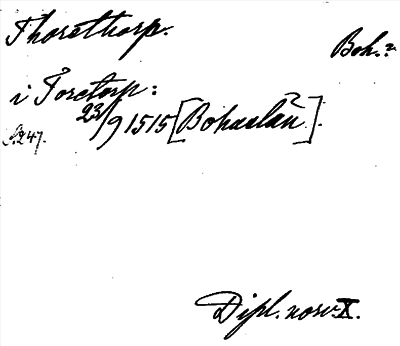 Thorethorp.
Boh.?
i Toretorp:
23/9 1515 [Bohuslän?].
S. 247.
Dipl. norv. X.